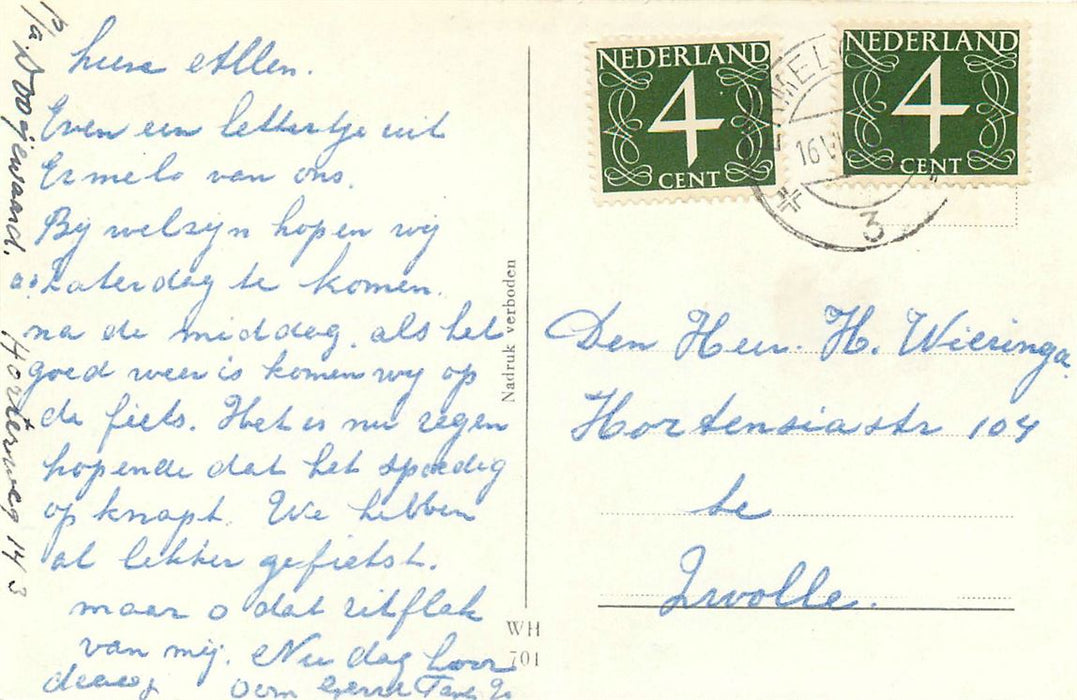 lieve Allen.
Even een lettertje uit
Ermelo van ons.
By welzyn hopen wy
Zaterdag te komen.
na de middag. als het
goed weer is komen wy op
de fiets. Het is nu regen
hopende dat het spoedig
op knapt. We hebben
al lekker gefietst.
maar o dat zitflak
van mij. Nu dag hoor
Oom
Horsterweg 143
Nadruk verboden
WH
701
NEDERLAND
4
CENT
NEDERLAND
4
CENT
ERMEL
16 VI
3
Den Heer. H. Wieringa
Hortensiastr 104
te
Zwolle.